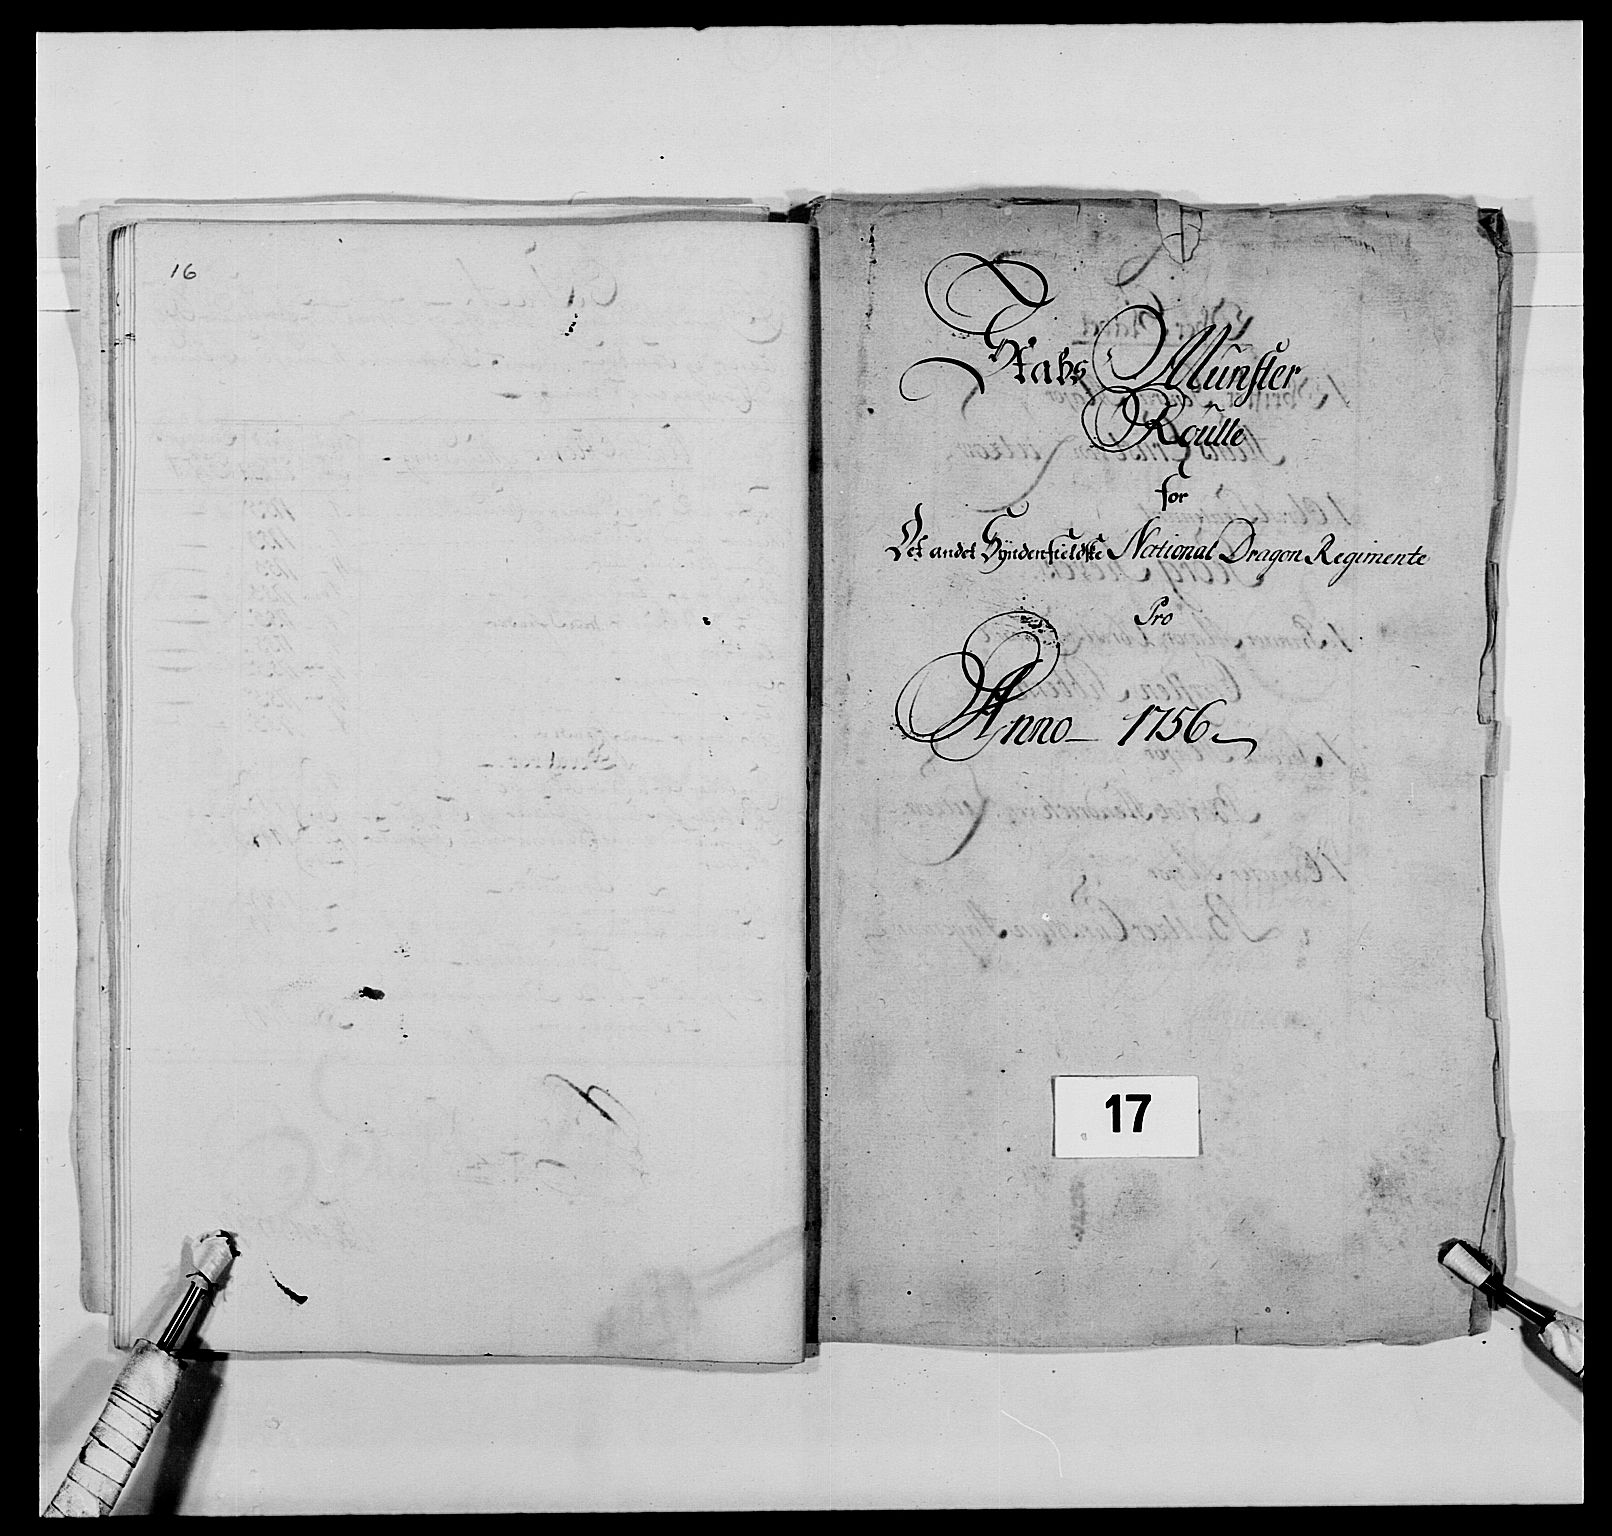 16
Stabs Munster
Roulle
for
Det andet Syndenfieldske National Dragon Regimente
Pro
Anno 1756
17